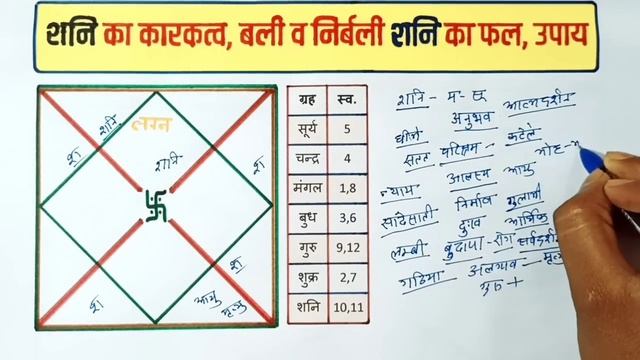 शनि का कारकत्व, बली व निर्बली शनि का फल, उपाय
लग्न
शनि
शनि
श
श
श
श
आयु
मृत्यु
ग्रह स्व.
सूर्य 5
चन्द्र 4
मंगल 1,8
बुध 3,6
गुरु 9,12
शुक्र 2,7
शनि 10,11
शनि -
अनुभव
सतत परिश्रम -
न्याय आलस्य आयु
साढेसाती
दुःख आर्थिक
लम्बी बुढापा - रोग
गठिया अलगाव -